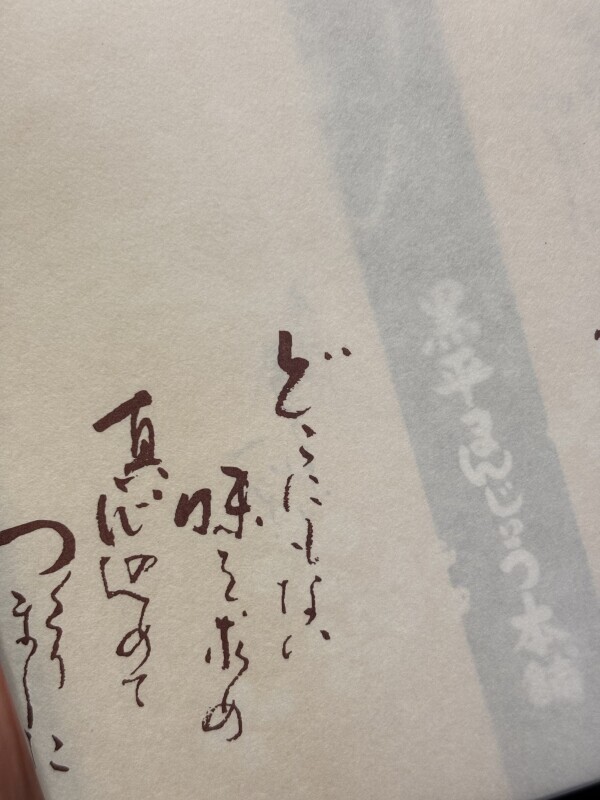 黒平まんじゅう本舗
どこにもない
味を求め
真心込めて
つくりました